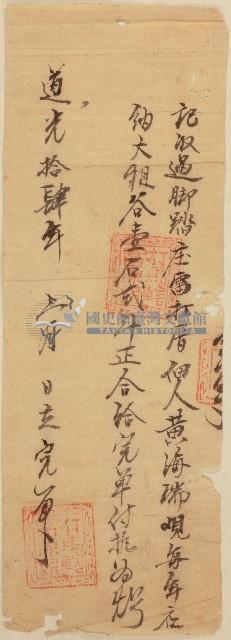 記收過脚踏庄雷打厝佃人黃海瑞覌每年應
納大租谷壹石貳斗正合給完單付执為炤
道光拾肆年 月 日立完單
國史館臺灣文獻館
TAIWAN HISTORICA